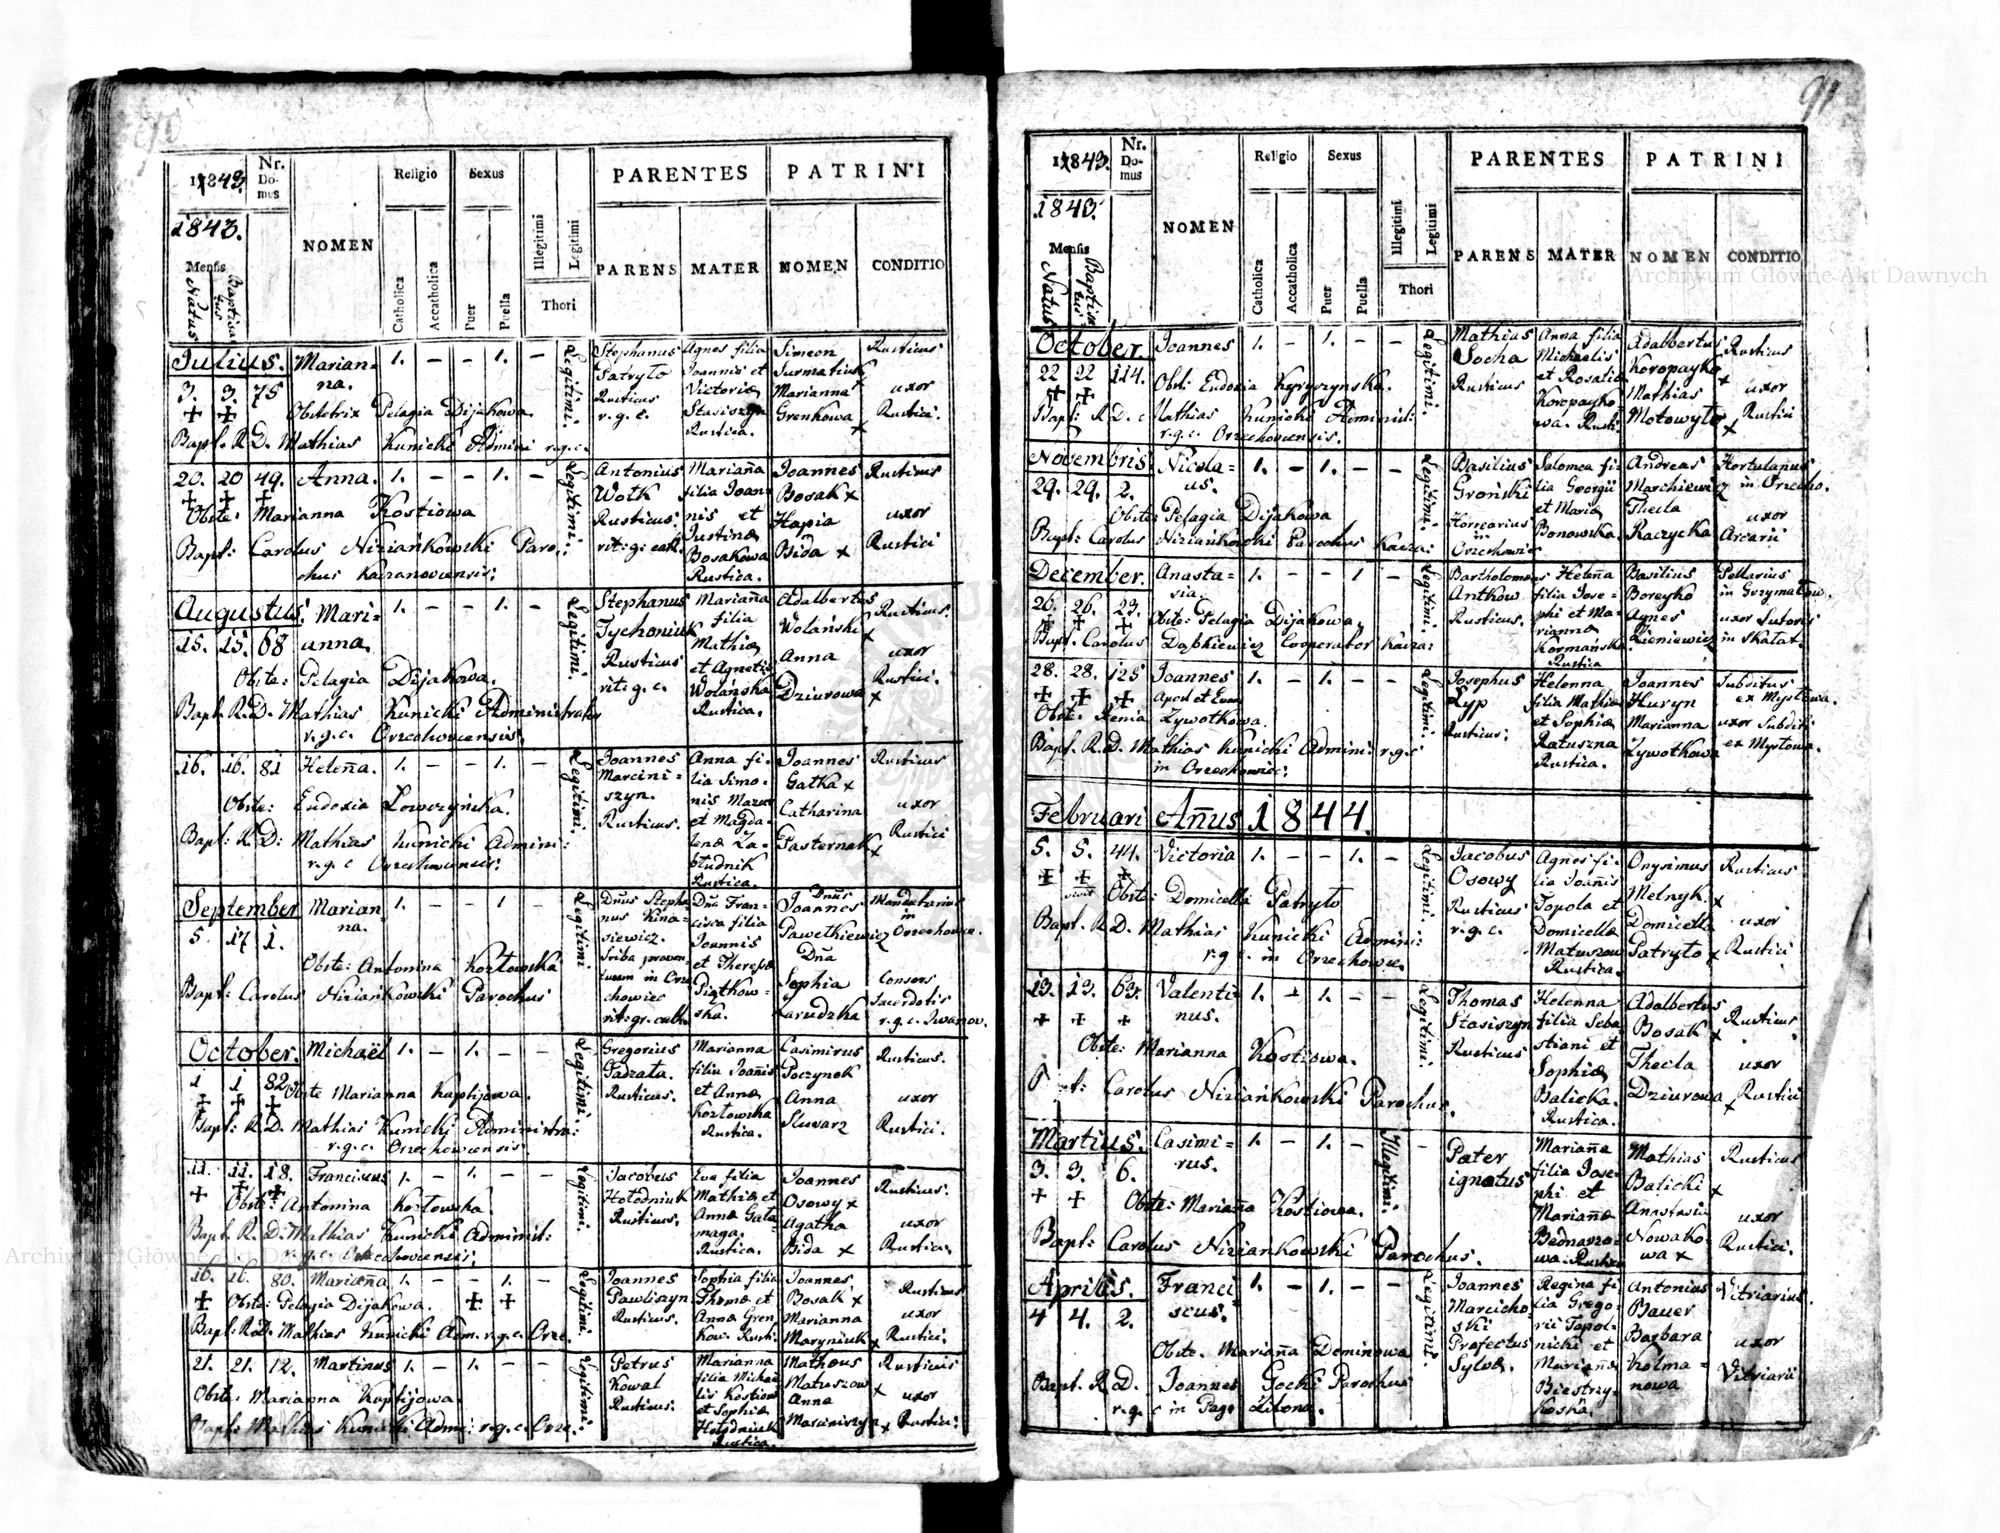 90
1843.
Nr. Domus
NOMEN
Religio
Sexus
PARENTES
PATRINI
1843.
Mensis
Natus
Baptisatus
Catholica
Accatholica
Puer
Puella
Illegitimi
Legitimi
Thori
PARENS
MATER
NOMEN
CONDITIO
Julius. Marianna. 1. – – 1. – Legitimi.
3. 3. 75
Obstetrix Pelagia Dijakowa.
Bapt: R. D. Mathias Kunicki Admini r.g.c.
Stephanus Patryło Rusticus r. g. c.
Agnes filia Joannis et Victoriæ Stasiszyn Rustica.
Simeon Surmatiuk Marianna Grenkowa
Rusticus uxor Rustici.
20. 20 49. Anna. 1. – – 1. – Legitimi.
Obste: Marianna Kostiowa
Bapt: Carolus Niziańkowski Parochus Kaczanovcensis:
Antonius Wołk Rusticus. rit: g: cath.
Mariaña filia Joannis et Justinæ Bosakowa Rustica.
Joannes Bosak x Hapia Bida x
Rusticus uxor Rustici
Augustus. Marianna. 1. – – 1. – Legitimi.
15. 15. 68
Obste: Pelagia Dijakowa.
Bapt. R. D. Mathias Kunicki Administrator r.g.c. Orzechovcensis.
Stephanus Tychoniuk Rusticus rit: g. c.
Mariaña filia Mathiæ et Agnetis Wolańska Rustica.
Adalbertus Wolański Anna Dziurowa
Rusticus. uxor Rustici.
16. 16. 81 Heleña. 1. – – 1. – Legitimi.
Obste: Eudoxia Lowczyńska.
Bapt: R. D: Mathias Kunicki Admini: r.g.c Orzechowcens:
Joannes Marciniszyn. Rusticus.
Anna filia Simonis Mazur et Magdalenæ Zabłudnik Rustica.
Joannes Gałka x Catharina Pasternak
Rusticus uxor Rustici
September Marianna. 1. – – 1 – Legitimi.
5 17 1.
Obste: Antonina Kozłowska
Bapt: Carolus Niziańkowski Parochus
Dñus Stephanus Kinasiewicz. Scriba proventuum in Orzechowiec rit: gr. cath.
Dña Francisca filia Joannis et Theresæ Piątkowska.
Dñus Joannes Pawełkiewicz Dña Sophia Zarudzka
Mandatarius in Orzechowce. Consors Sacerdotis r.g.c. Iwanow.
October. Michaël 1. – 1. – – Legitimi.
1 1 82
Obste Marianna Kaptijowa.
Bapt: R. D. Mathias Kunicki Administra: r.g.c. Orzechowcensis.
Gregorius Padzała. Rusticus.
Marianna filia Joañis et Annæ Kozłowska Rustica.
Casimirus Poczynok Anna Sluwarz
Rusticus. uxor Rustici.
11. 11. 18. Franciscus 1. – 1. – – Legitimi.
Obste: Antonina Kozłowska.
Bapt. R. D: Mathias Kunicki Administ: r.g.c. Orzechovcensis:
Jacobus Hołodniuk Rusticus.
Eva filia Mathiæ et Annæ Gałamaga. Rustica.
Joannes Osowy x Agatha Bida x
Rusticus. uxor Rustici.
16. 16. 80. Mariaña 1. – – 1. – Legitimi.
Obste: Pelagia Dijakowa.
Bapt: R.D. Mathias Kunicki Adm. r.g.c. Orze.
Joannes Pawliszyn Rusticus.
Sophia filia Thomæ et Annæ Grenkow. Rusti.
Joannes Bosak x Marianna Maryniuk x
Rusticus uxor Rustici.
21. 21. 12. Martinus 1. – 1. – – Legitimi.
Obste: Marianna Kaptijowa.
Bapt: Mathias Kunicki Admi: r.g.c. Orze.
Petrus Kowal Rusticus:
Marianna filia Michaelis Kostiow et Sophiæ Hołodniuk Rustica.
Matheus Matuszow Anna Marciniszyn x
Rusticus uxor Rustici:
91
1843.
Nr. Domus
NOMEN
Religio
Sexus
PARENTES
PATRINI
1843.
Mensis
Natus
Baptisatus
Catholica
Accatholica
Puer
Puella
Illegitimi
Legitimi
Thori
PARENS
MATER
NOMEN
CONDITIO
October. Joannes 1. – 1. – – Legitimi.
22 22 114.
Obst: Eudoxia Kyryszynska.
Bapt: R. D. Mathias Kunicki Adminis: r.g.c. Orzechovcensis.
Mathias Socha Rusticus
Anna filia Michaelis et Rosaliæ Koropaykowa. Rusti.
Adalbertus Koropayko x Mathias Motowyło x
Rusticus uxor Rustici
Novembris Nicolaus. 1. – 1. – – Legitimi.
29. 29. 2.
Obste: Pelagia Dijakowa
Bapt: Carolus Niziańkowski Parochus Kacza:
Basilius Groński Horrearius in Orzechowiec
Salomea filia Georgii et Mariæ Bonowska.
Andreas Marchiewicz Thecla Raczycka
Hortulanus in Orzecho. uxor Arcarii
December. Anastasia. 1. – – 1 – Legitimi.
26. 26. 23.
Obste: Pelagia Dijakowa
Bapt. Carolus Dąbkiewicz Cooperator Kacza:
Bartholomeus Antkow Rusticus.
Heleña filia Josephi et Marianna Kormańska Rustica
Basilius Boreyko Agnes Zieniewicz
Pellarius in Grzymałow. uxor Sutoris in Skałat.
28. 28. 125 Joannes Apost et Evan 1. – 1. – – Legitimi.
Obste: Xenia Zywotkowa.
Bapt. R. D. Mathias Kunicki Admini: r.g.c in Orzechowiec:
Josephus Łyp Rusticus:
Helenna filia Mathiæ et Sophiæ Ratuszna Rustica.
Joannes Huryn Marianna Zywotkowa
Subditus ex Mysłowa. uxor Subditi ex Mysłowa.
Februari Añus 1844.
5. 5. 44. Victoria 1. – – 1. – Legitimi.
Obste: Domicella Patryło
Bapt. R. D. Mathias Kunicki Admini: r.g c. in Orzechowce.
Jacobus Osowy Rusticus r. g. c.
Agnes filia Joañis Topola et Domicellæ Matuszow Rustica.
Onysimus Melnyk. x Domicella Patryło x
Rusticus uxor Rustici
13. 13. 63. Valentinus. 1. – 1. – – Legitimi.
Obste: Marianna Kostiowa.
Carolus Niziańkowski Parochus.
Thomas Stasiszyn Rusticus
Helenna filia Sebastiani et Sophiæ Balicka. Rustica.
Adalbertus Bosak x Thecla Dziurowa x
Rusticus uxor Rustici
Martius. Casimirus. 1. – 1. – Illegitimi. –
3. 3. 6.
Obste: Mariaña Kostiowa.
Bapt: Carolus Niziańkowski Parochus.
Pater ignotus
Mariaña filia Josephi et Mariañæ Bednarzowa. Rustica
Mathias Balicki x Anastasia Nowakowa x
Rusticus uxor Rustici.
Aprilis. Franciscus. 1. – 1. – – Legitimi.
4 4. 2.
Obste. Mariaña Deminowa
Bapt. R. D. Joannes Gocki Parochus r.g. c in Pago Zilona.
Joannes Marcichoski Præfectus Sylvæ.
Regina filia Gregorii Topolnicki et Mariañæ Biestrzykoska.
Antonius Bauer Barbara Kolmanowa
Vitriarius. uxor Vitriarii
Archiwum Główne Akt Dawnych
Archiwum Główne Akt Dawnych